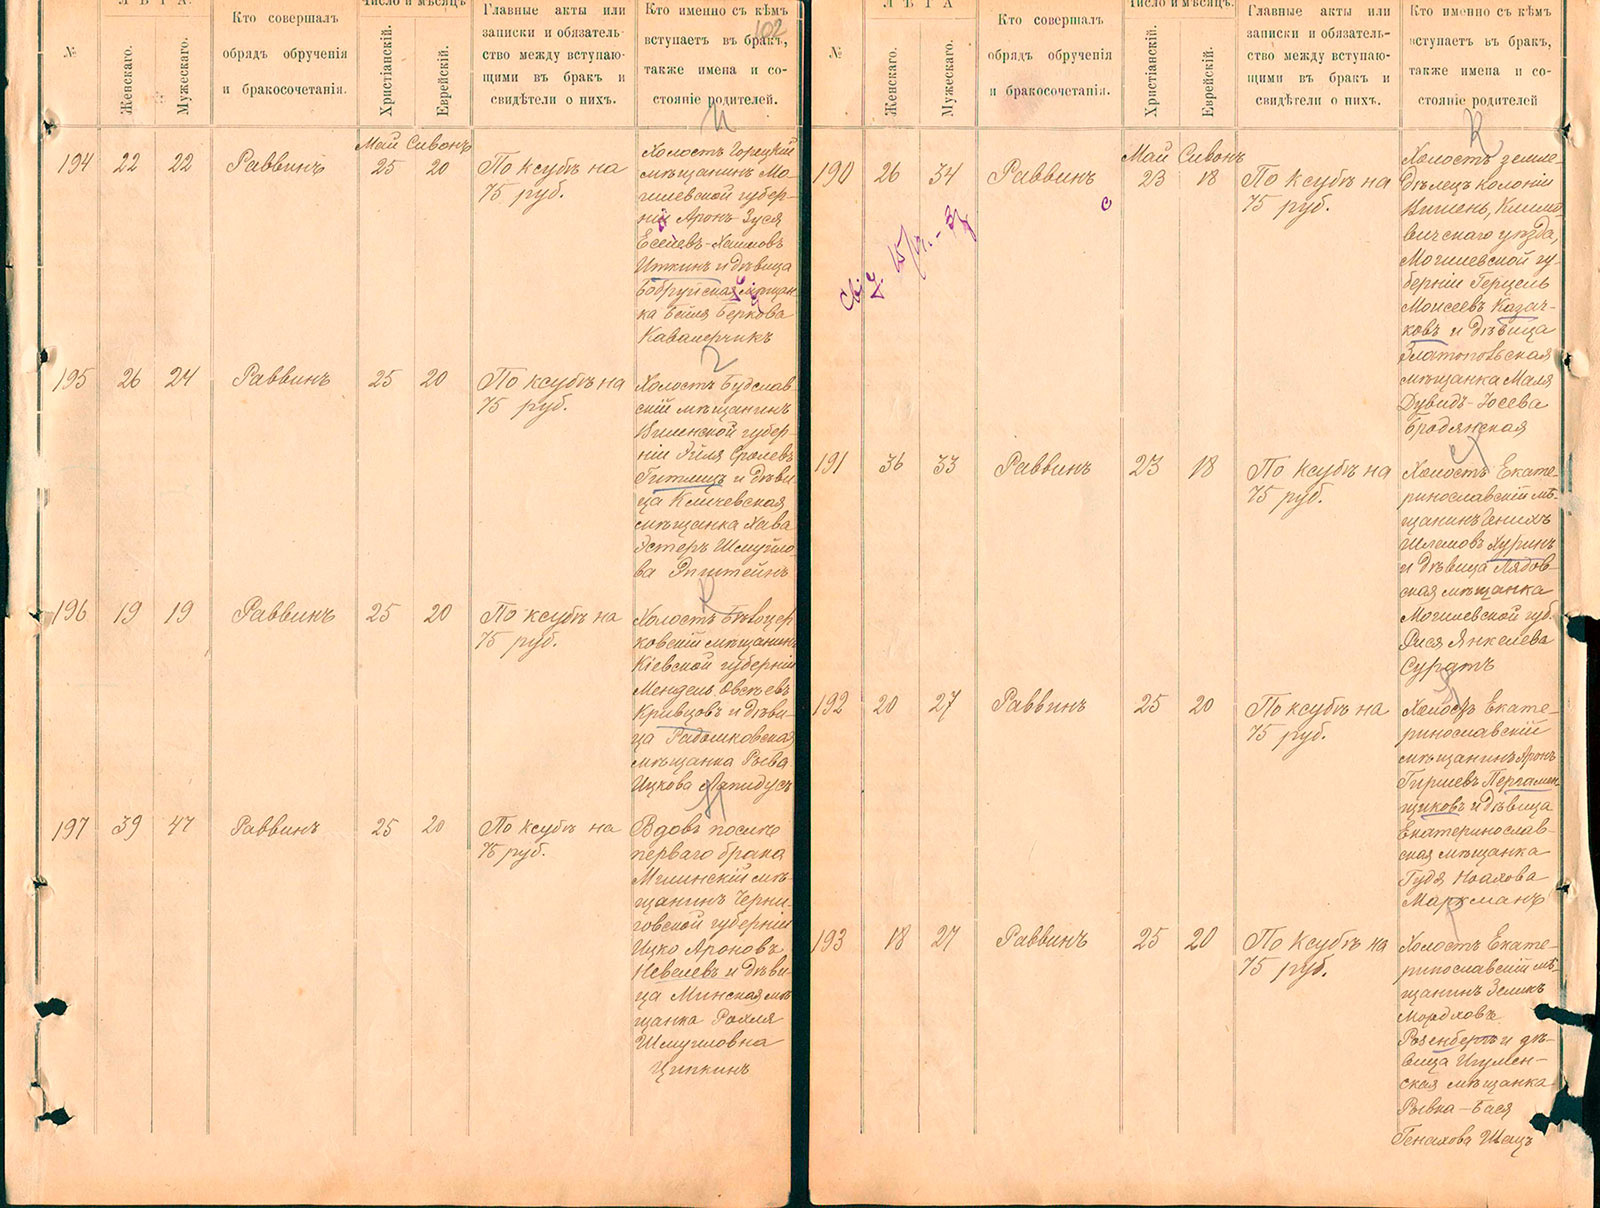 ЛѢТА.
№
Женскаго.
Мужескаго.
Кто совершалъ
обрядъ обрученія
и бракосочетанія.
Число и мѣсяцъ
Христіанскій.
Еврейскій.
Главные акты или
записки и обязатель-
ство между вступаю-
щими въ бракъ и
свидѣтели о нихъ.
Кто именно съ кѣмъ
вступаетъ въ бракъ,
также имена и со-
стояніе родителей.
102
Май Сивонъ
194 22 22 Раввинъ 25 20 По ксубѣ на
75 руб.
Холостъ Горецкій
мѣщанинъ Мо-
гилевской губер-
ніи Аронъ-Зуся
Есеевъ-Хаимовъ
Иткинъ и дѣвица
Бобруйская мѣщан-
ка Бейля Беркова
Кавалерчикъ
195 26 24 Раввинъ 25 20 По ксубѣ на
75 руб.
Холостъ Будслав-
скій мѣщанинъ
Виленской губер-
ніи Эйля Сролевъ
Гитлицъ и дѣви-
ца Кличевская
мѣщанка Хава
Эстеръ Шмуйло-
ва Эпштейнъ
196 19 19 Раввинъ 25 20 По ксубѣ на
75 руб.
Холостъ Бѣлоцер-
ковскій мѣщанинъ
Кіевской губерніи
Мендель Овсѣевъ
Кривцовъ и дѣви-
ца Радошковская
мѣщанка Рыва
Ицкова Лапидусъ
197 39 47 Раввинъ 25 20 По ксубѣ на
75 руб.
Вдовъ послѣ
перваго брака
Мглинскій мѣ-
щанинъ Черни-
говской губерніи
Ицко Ароновъ
Невелевъ и дѣви-
ца Минская мѣ-
щанка Рохля
Шмуиловна
Ципкинъ
ЛѢТА
№
Женскаго.
Мужескаго.
Кто совершалъ
обрядъ обрученія
и бракосочетанія.
Число и мѣсяцъ.
Христіанскій.
Еврейскій.
Главные акты или
записки и обязатель-
ство между вступаю-
щими въ бракъ и
свидѣтели о нихъ.
Кто именно съ кѣмъ
вступаетъ въ бракъ,
также имена и со-
стояніе родителей
Май Сивонъ
190 26 34 Раввинъ 23 18 По ксубѣ на
75 руб.
Холостъ земле-
дѣлецъ колоніи
Вишень, Климо-
вичскаго уѣзда,
Могилевской гу-
берніи Герцель
Моисеевъ Казач-
ковъ и дѣвица
Златопольская
мѣщанка Маля
Дувидъ-Іосева
Бродянская
191 36 33 Раввинъ 23 18 По ксубѣ на
75 руб.
Холостъ Екате-
ринославскій мѣ-
щанинъ
Шлемовъ Хуринъ
и дѣвица Лядов-
ская мѣщанка
Могилевской губ.
Рися Янкелева
Суратъ
192 20 27 Раввинъ 25 20 По ксубѣ на
75 руб.
Холостъ Екате-
ринославскій
мѣщанинъ Аронъ
Гиршевъ Пергамен-
щиковъ и дѣвица
Екатеринослав-
ская мѣщанка
Гудя Ноахова
Маркманъ
193 18 27 Раввинъ 25 20 По ксубѣ на
75 руб.
Холостъ Екате-
ринославскій мѣ-
щанинъ Зеликъ
Мордховъ
Розенбергъ и дѣ-
вица Игумен-
ская мѣщанка
Рывка-Бася
Генахова Шацъ